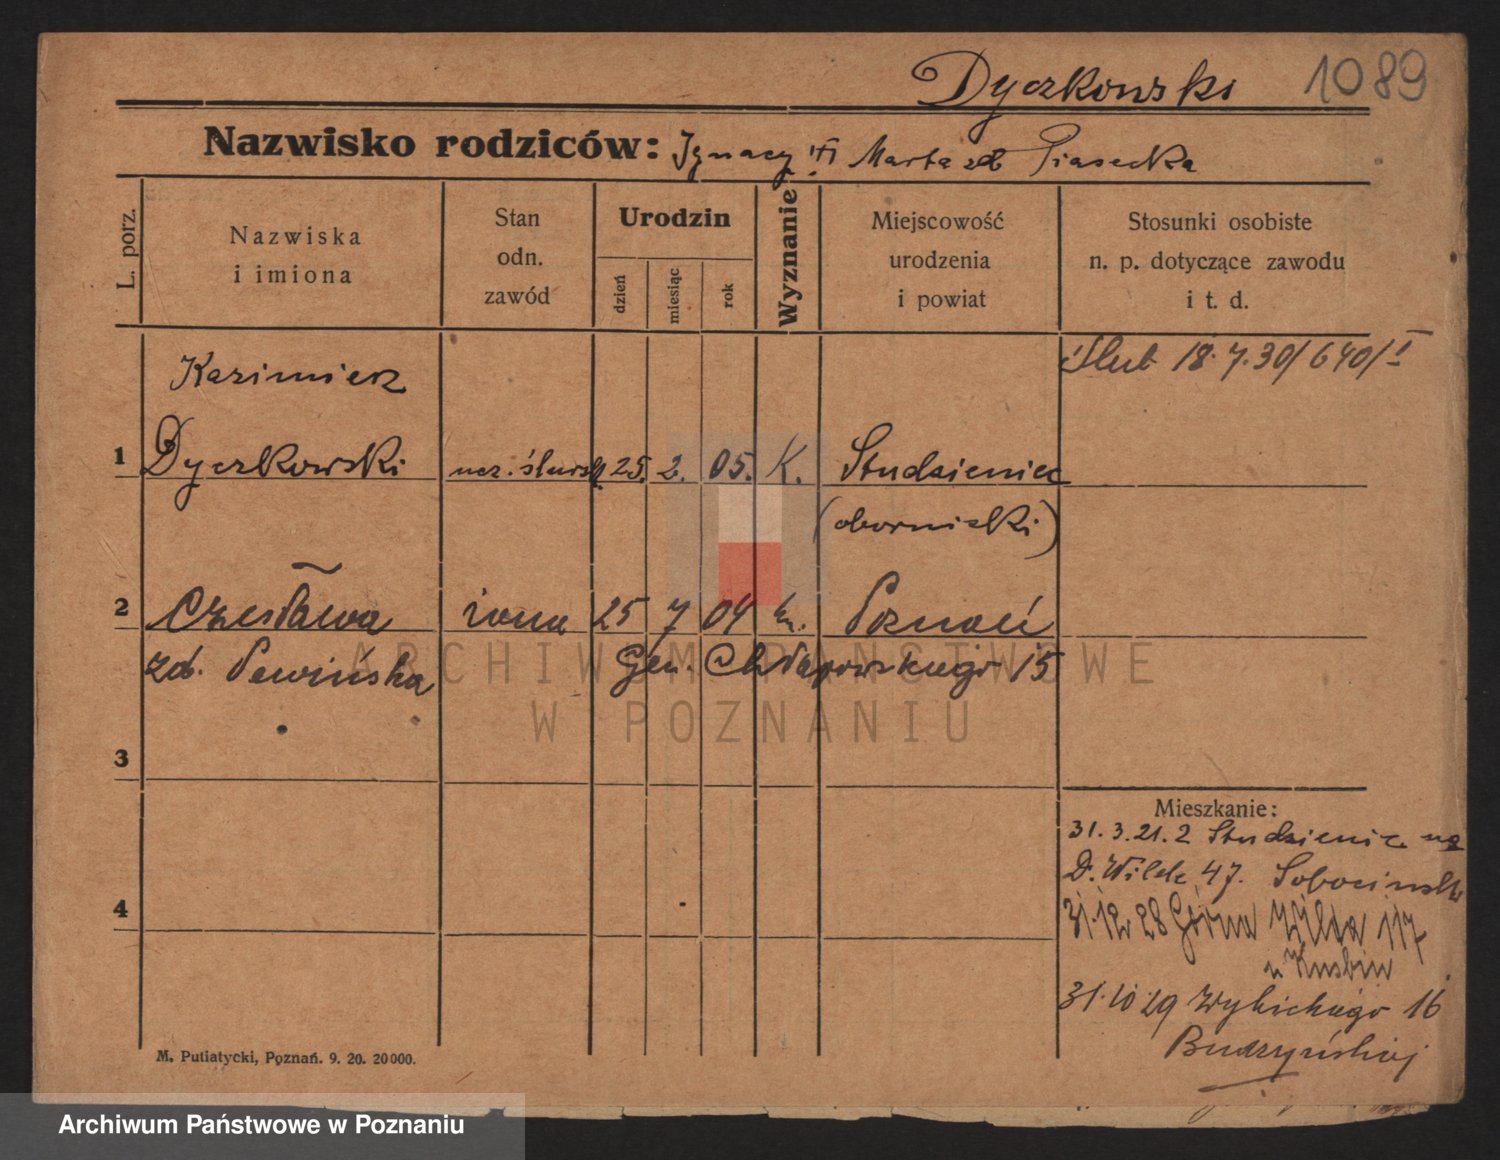 Dyczkowski 1089
Nazwisko rodziców: Ignacy i Marta zd Piasecka
L. porz.
Nazwiska
i imiona
Stan
odn.
zawód
Urodzin
dzień
miesiąc
rok
Wyznanie
Miejscowość
urodzenia
i powiat
Stosunki osobiste
n. p. dotyczące zawodu
i t. d.
Ślub 18.7.30/640/I
Kazimierz
1 Dyczkowski ucz. ślusar. 25. 2. 05. K. Studzieniec
(obornicki)
2 Czesława żona 25 7 04 k. Poznań
zd. Pewińska Gen. Chłapowskiego 15
3
Mieszkanie:
31.3.21.2 Studzieniec
D. Wilda 47. Sobocinsk
4
31.12 28 Górna Wilda 117
u
31.10 29 Wybickiego 16
Budzyńskiej
M. Putiatycki, Poznań. 9. 20. 20000.
ARCHIWUM PAŃSTWOWE
W POZNANIU
Archiwum Państwowe w Poznaniu